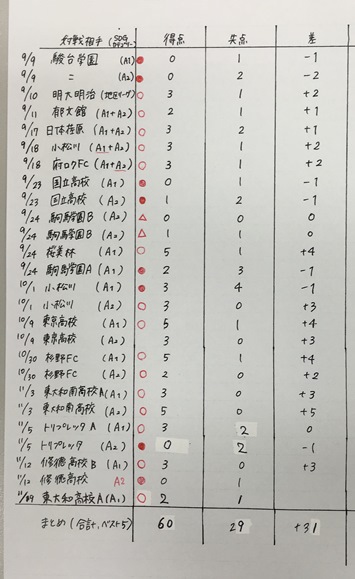 対戦相手 得点 失点 差
9/9 駿台学園 (A1) ● 0 1 -1
9/9 〃 (A2) ● 0 2 -2
9/10 明大明治 (地区リーグ) ○ 3 1 +2
9/11 郁文館 (A1+A2) ○ 2 1 +1
9/17 日体荏原 (A1+A2) ○ 3 2 +1
9/18 小松川 (A1+A2) ○ 3 1 +2
9/18 府ロクFC (A1+A2) ○ 3 1 +2
9/23 国立高校 (A1) ● 0 1 -1
9/23 国立高校 (A2) ● 1 2 -1
9/24 駒場学園B (A2) △ 0 0 0
9/24 駒場学園B (A2) △ 1 1 0
9/24 桜美林 (A1) ○ 5 1 +4
9/24 駒場学園A (A1) ● 2 3 -1
10/1 小松川 (A1) ● 3 4 -1
10/1 小松川 (A2) ○ 3 0 +3
10/9 東京高校 (A1) ○ 5 1 +4
10/9 東京高校 (A2) 3 0 +3
10/30 杉野FC (A1) ○ 5 1 +4
10/30 杉野FC (A2) ○ 2 0 +2
11/3 東大和南高校A (A1) ○ 3 0 +3
11/3 東大和南高校 (A2) ○ 5 0 +5
11/5 トリプレッタA (A1) ○ 3 2 0
11/5 トリプレッタ (A2) ● 0 2 -1
11/12 修徳高校B (A1) ○ 3 0 +3
11/12 修徳高校 A2 ● 0 1
東大和高校A (A1) ○ 2 1
まとめ (合計, ベスト5) 60 29 +31